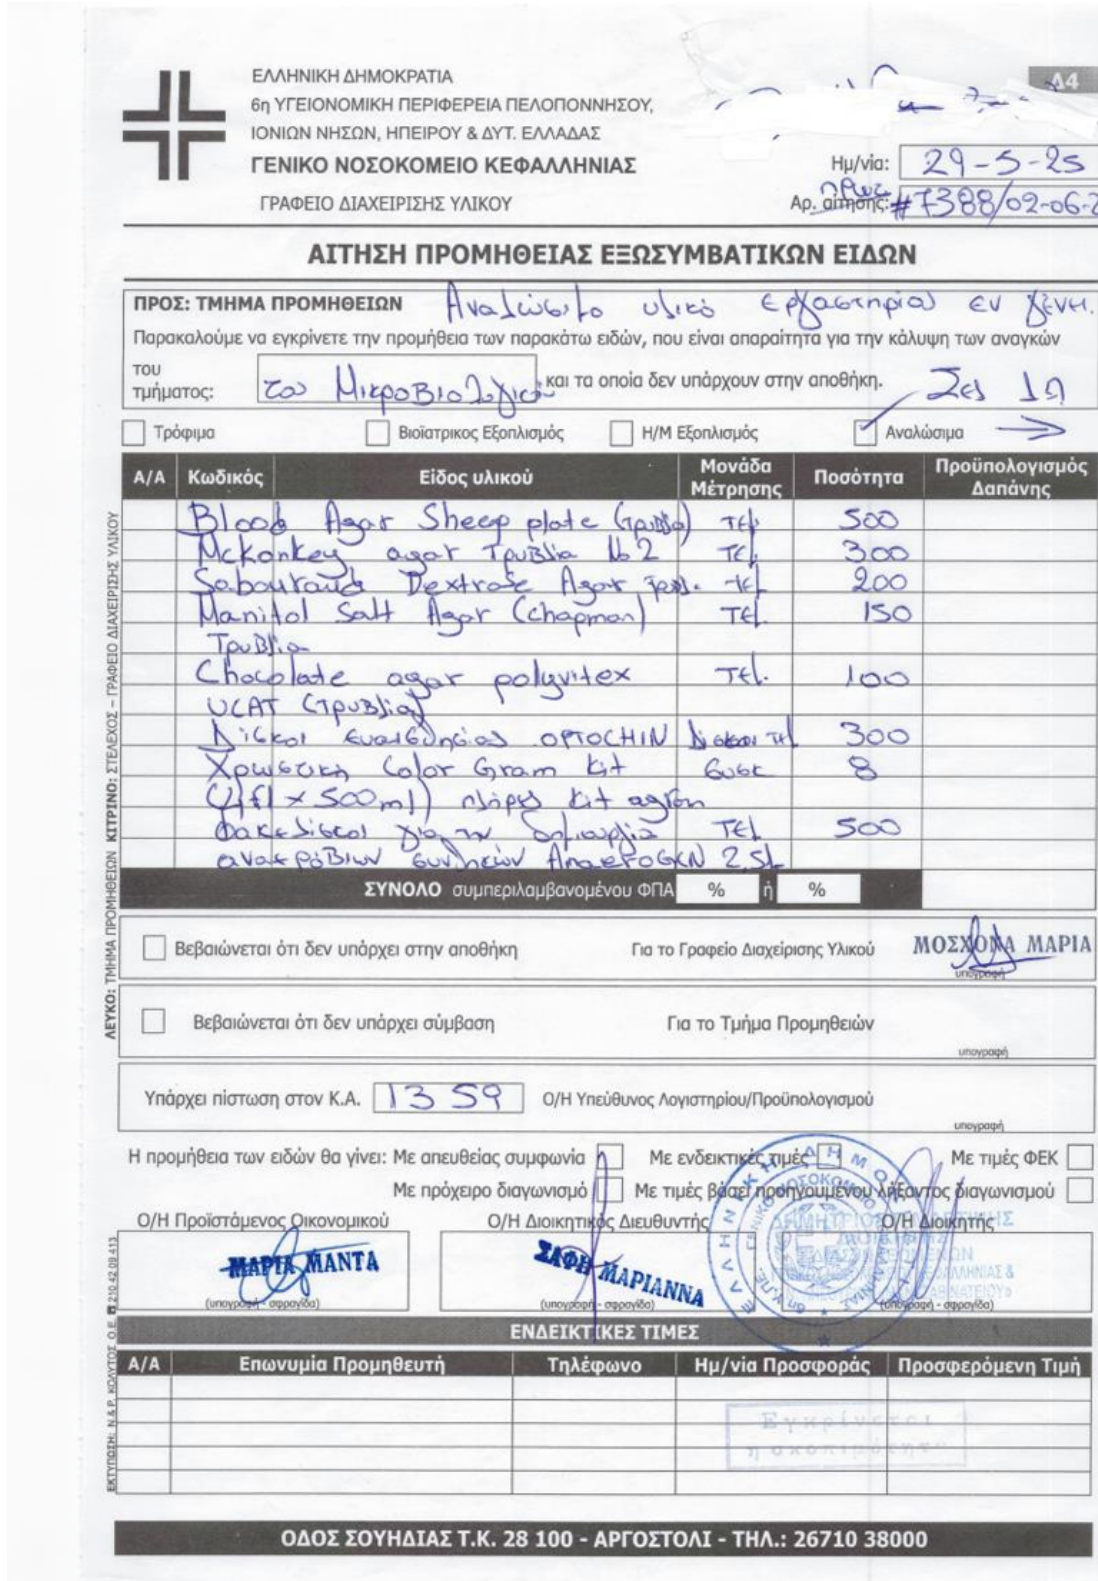 Δ4
ΕΛΛΗΝΙΚΗ ΔΗΜΟΚΡΑΤΙΑ
6η ΥΓΕΙΟΝΟΜΙΚΗ ΠΕΡΙΦΕΡΕΙΑ ΠΕΛΟΠΟΝΝΗΣΟΥ,
ΙΟΝΙΩΝ ΝΗΣΩΝ, ΗΠΕΙΡΟΥ & ΔΥΤ. ΕΛΛΑΔΑΣ
ΓΕΝΙΚΟ ΝΟΣΟΚΟΜΕΙΟ ΚΕΦΑΛΛΗΝΙΑΣ
Ημ/νία: 29-5-25
ΓΡΑΦΕΙΟ ΔΙΑΧΕΙΡΙΣΗΣ ΥΛΙΚΟΥ
Αρ. αίτησης: πρωτ #7388/02-06-2
ΑΙΤΗΣΗ ΠΡΟΜΗΘΕΙΑΣ ΕΞΩΣΥΜΒΑΤΙΚΩΝ ΕΙΔΩΝ
ΠΡΟΣ: ΤΜΗΜΑ ΠΡΟΜΗΘΕΙΩΝ Αναλώσιμο υλικό εργαστηρίου εν γένει.
Παρακαλούμε να εγκρίνετε την προμήθεια των παρακάτω ειδών, που είναι απαραίτητα για την κάλυψη των αναγκών
του τμήματος: του Μικροβιολογικού και τα οποία δεν υπάρχουν στην αποθήκη. Σελ 1η
Τρόφιμα Βιοϊατρικος Εξοπλισμός Η/Μ Εξοπλισμός Αναλώσιμα →
Α/Α Κωδικός Είδος υλικού Μονάδα Μέτρησης Ποσότητα Προϋπολογισμός Δαπάνης
Blood Agar Sheep plate (τρυβλία) τεμ 500
McKonkey agar τρυβλία No 2 τεμ 300
Sabouraud Dextrose Agar τρυβλ. τεμ 200
Manitol Salt Agar (chapman) τεμ 150
Τρυβλία
Chocolate agar polyvitex τεμ. 100
VCAT (τρυβλία)
Δίσκοι ευαισθησίας OPTOCHIN Δίσκοι τεμ 300
Χρωστική Color Gram kit συσκ 8
(4fl x 500ml) πλήρες kit
Φακελίσκοι για την δημιουργία τεμ 500
αναερόβιων συνθηκών AnaeroGEN 2.5L
ΣΥΝΟΛΟ συμπεριλαμβανομένου ΦΠΑ % ή %
Βεβαιώνεται ότι δεν υπάρχει στην αποθήκη Για το Γραφείο Διαχείρισης Υλικού ΜΟΣΧΟΝΑ ΜΑΡΙΑ
υπογραφή
Βεβαιώνεται ότι δεν υπάρχει σύμβαση Για το Τμήμα Προμηθειών
υπογραφή
Υπάρχει πίστωση στον Κ.Α. 1359 Ο/Η Υπεύθυνος Λογιστηρίου/Προϋπολογισμού
υπογραφή
Η προμήθεια των ειδών θα γίνει: Με απευθείας συμφωνία Με ενδεικτικές τιμές Με τιμές ΦΕΚ
Με πρόχειρο διαγωνισμό Με τιμές βάσει προηγουμένου λήξαντος διαγωνισμού
Ο/Η Προϊστάμενος Οικονομικού Ο/Η Διοικητικός Διευθυντής Ο/Η Διοικητής
ΜΑΡΙΑ ΜΑΝΤΑ ΣΑΦΗ ΜΑΡΙΑΝΝΑ
(υπογραφή - σφραγίδα) (υπογραφή - σφραγίδα) (υπογραφή - σφραγίδα)
ΕΝΔΕΙΚΤΙΚΕΣ ΤΙΜΕΣ
Α/Α Επωνυμία Προμηθευτή Τηλέφωνο Ημ/νία Προσφοράς Προσφερόμενη Τιμή
Εγκρίνεται
η σκοπιμότητα
ΟΔΟΣ ΣΟΥΗΔΙΑΣ Τ.Κ. 28 100 - ΑΡΓΟΣΤΟΛΙ - ΤΗΛ.: 26710 38000
ΛΕΥΚΟ: ΤΜΗΜΑ ΠΡΟΜΗΘΕΙΩΝ ΚΙΤΡΙΝΟ: ΣΤΕΛΕΧΟΣ – ΓΡΑΦΕΙΟ ΔΙΑΧΕΙΡΙΣΗΣ ΥΛΙΚΟΥ